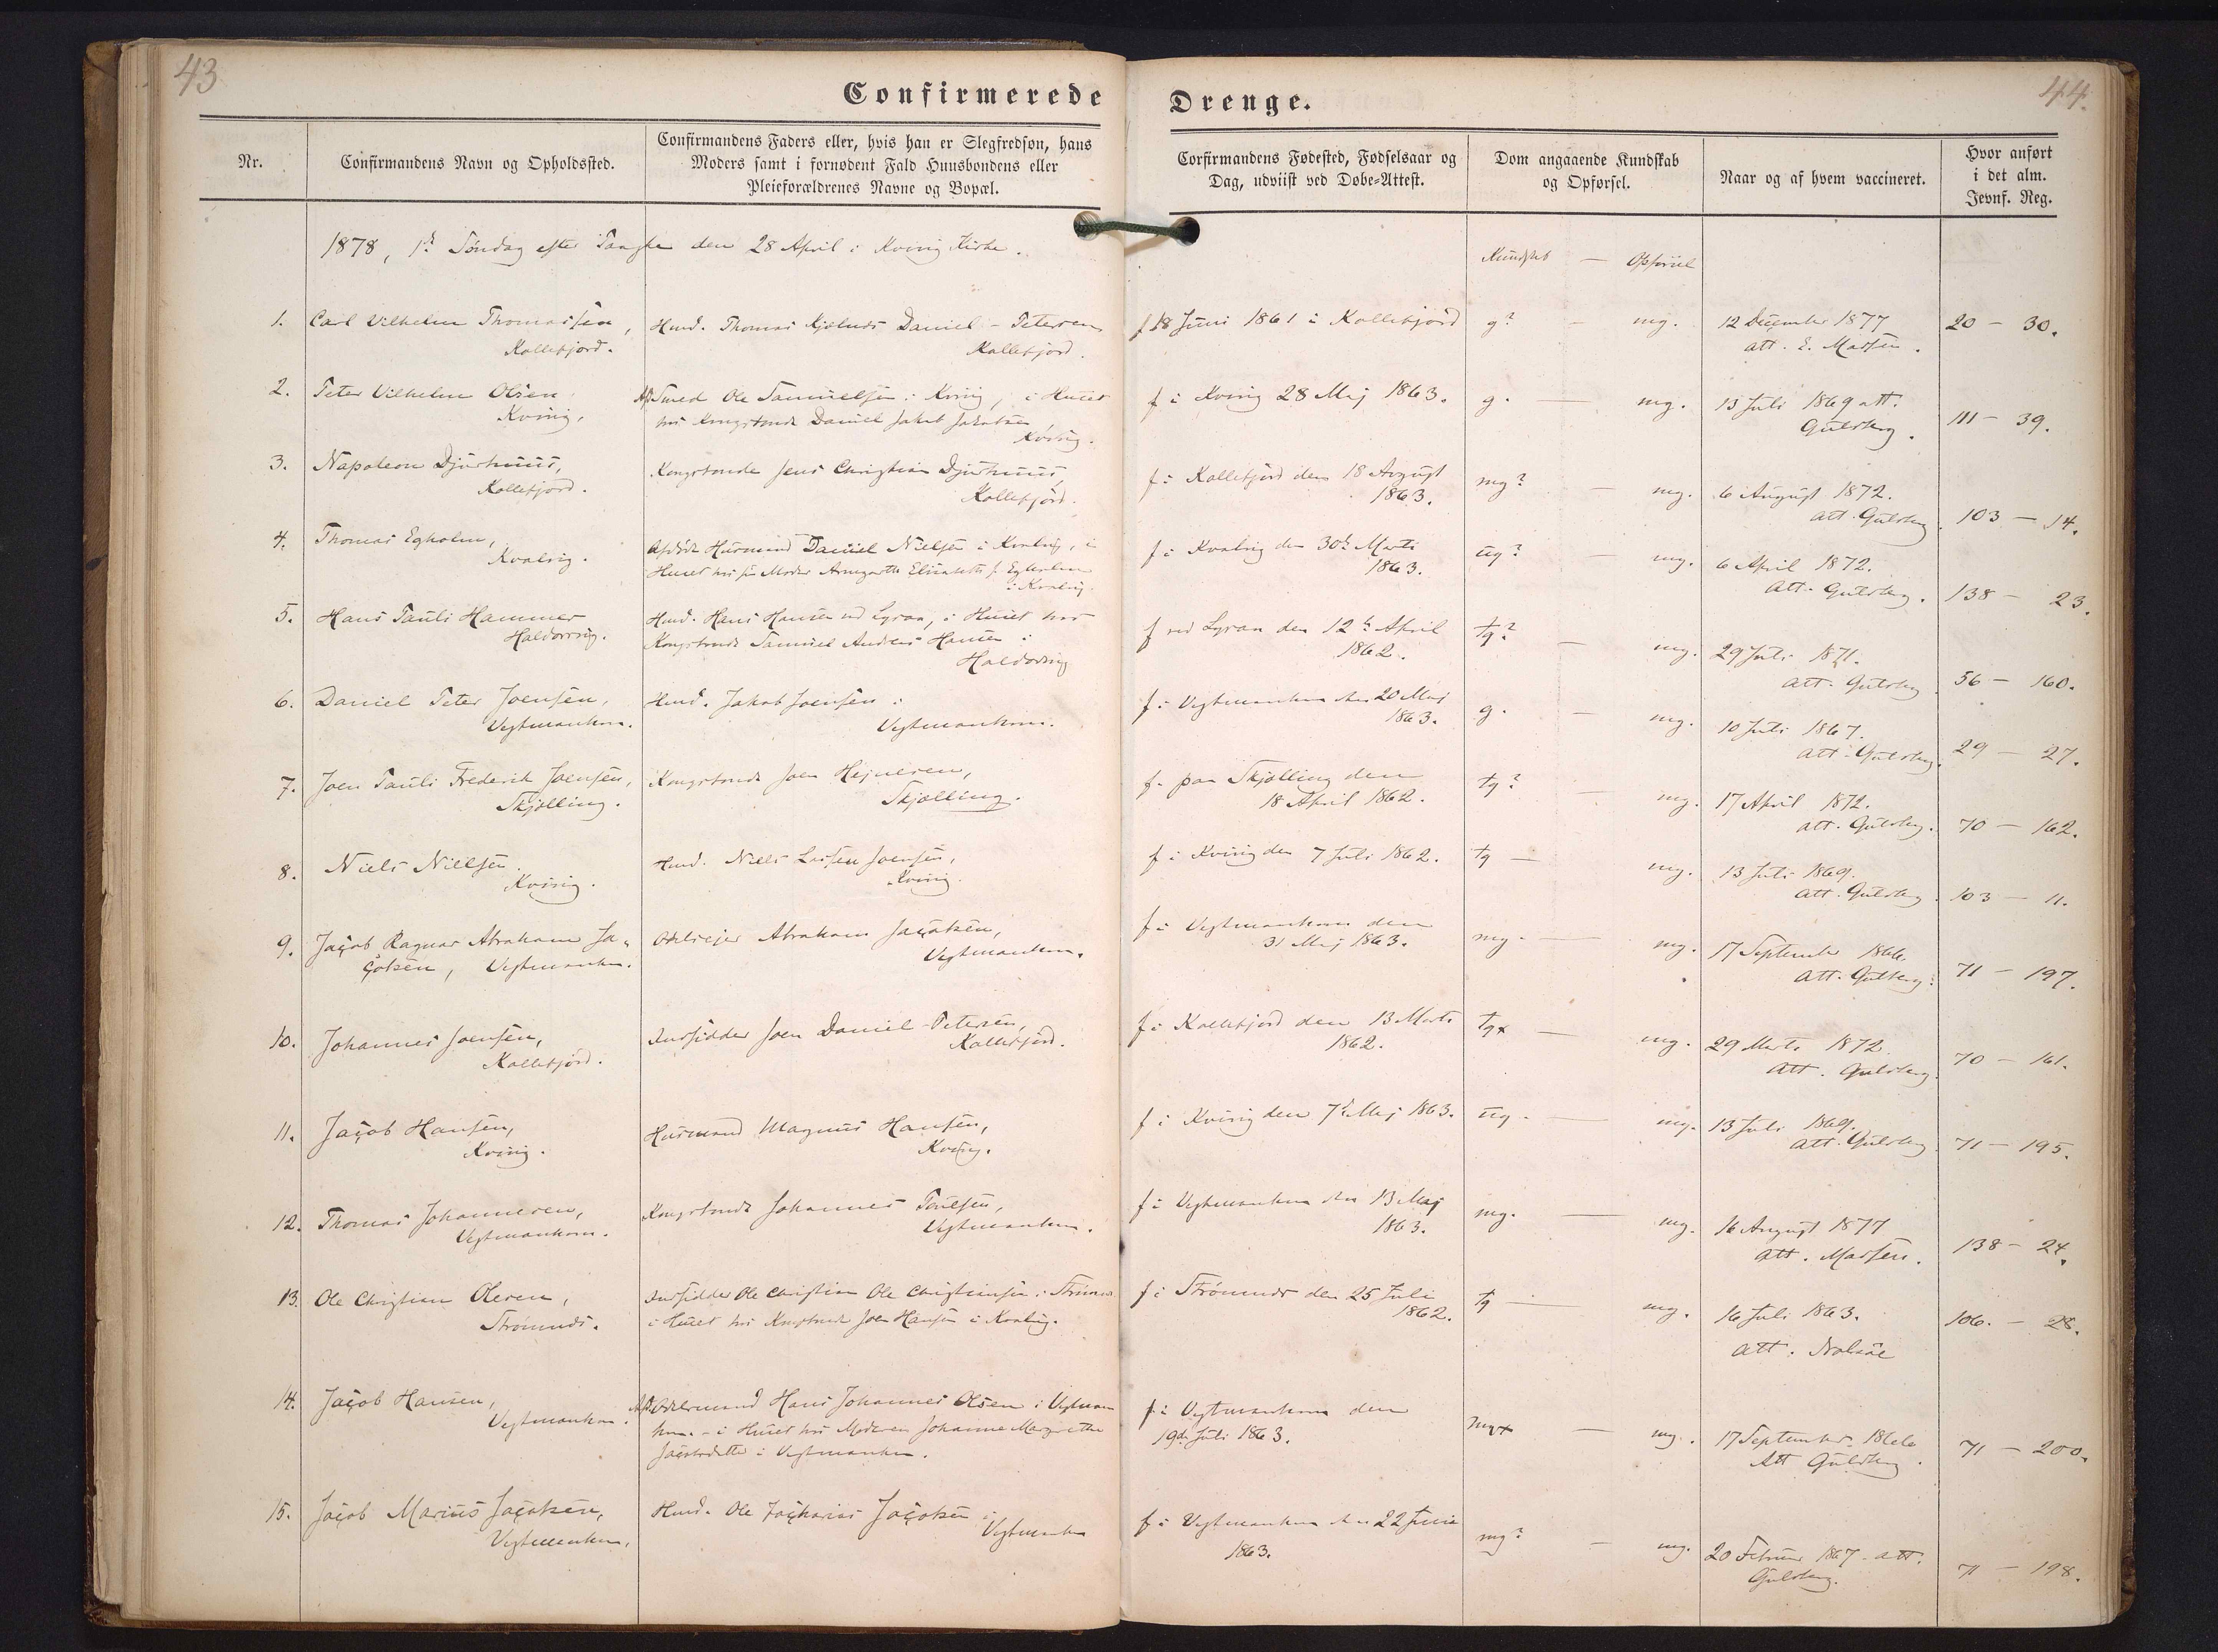 43
44.
Confirmerede Drenge.
Nr.
Confirmandens Navn og Opholdssted.
Confirmandens Faders eller, hvis han er Slegfredsøn, hans
Moders samt i fornødent Fald Huusbondens eller
Pleieforældrenes Navne og Bopæl.
Corfirmandens Fødested, Fødselsaar og
Dag, udviist ved Døbe-Attest.
Dom angaaende Kundskab
og Opførsel.
Naar og af hvem vaccineret.
Hvor anført
i det alm.
Jevnf. Reg.
1878, 1ste Søndag efter Paaske den 28 April i Kvivig Kirke.
Kundskab — Opførsel
1. Carl Vilhelm Thomassen,
Kollefjord.
Hmd. Thomas Kjølnæs Daniel-Petersen
Kollefjord.
f 18 Juni 1861 i Kollefjord
g? — mg.
12 December 1877
att. E. Madsen.
20 — 30.
2. Peter Vilhelm Olsen
Kvivig.
Afd. Smed Ole Samuelsen i Kvivig, i Huset
hos Kongsbonde Daniel Jakob Jakobsen
Kvivig.
f i Kvivig 28 Maj 1863.
g. — mg.
15 Juli 1869 att.
Guldberg.
111 — 39.
3. Napoleon Djurhuus,
Kollefjord.
Kongsbonde Jens Christian Djurhuus
Kollefjord.
f i Kollefjord den 18 August
1863.
mg? — mg.
6 August 1872.
att. Guldberg.
103 — 14.
4. Thomas Egholm,
Kvalvig.
Afdøde Husmand Daniel Nielsen i Kvalvig, i
Huset hos sin Moder Armgarth Elisabeth f. Egholm
i Kvalvig.
f i Kvalvig den 30te Marts
1863.
ug? — mg.
6 April 1872.
att. Guldberg.
138 — 23.
5. Hans Pauli Hammer
Haldorsvig.
Hmd. Hans Hansen ved Lyraa, i Huset hos
Kongsbonde Samuel Anders Hansen i
Haldorsvig
f ved Lyraa den 12te April
1862.
tg? — mg.
29 Juli 1871.
att. Guldberg
56 — 160.
6. Daniel Peter Joensen,
Vestmanhavn.
Hmd. Jakob Joensen i
Vestmanhavn.
f i Vestmanhavn den 20 Maj
1863.
g. — mg.
10 Juli 1867.
att. Guldberg.
29 — 27.
7. Joen Pauli Frederik Joensen,
Skjælling.
Kongsbonde Joen Hejnesen,
Skjælling.
f. paa Skjælling den
18 April 1862.
tg? — mg.
17 April 1872.
att. Guldberg.
70 — 162.
8. Niels Nielsen
Kvivig.
Hmd. Niels Lassen Joensen,
Kvivig.
f i Kvivig den 7 Juli 1862.
tg — mg.
13 Juli 1869.
att. Guldberg.
103 — 11.
9. Jacob Ragnar Abraham Ja-
cobsen, Vestmanhavn.
Odelsejer Abraham Jacobsen,
Vestmanhavn.
f i Vestmanhavn den
31 Maj 1863.
mg. — mg.
17 September 1866.
att. Guldberg.
71 — 197.
10. Johannes Joensen,
Kollefjord.
Indsidder Joen Daniel-Petersen,
Kollefjord.
f i Kollefjord den 13 Marts
1862.
tg+ — mg.
29 Marts 1872.
att. Guldberg.
70 — 161.
11. Jacob Hansen,
Kvivig.
Husmand Magnus Hansen,
Kvivig.
f i Kvivig den 7de Maj 1863.
ug. — mg.
13 Juli 1869.
att. Guldberg.
71 — 195.
12. Thomas Johannesen,
Vestmanhavn.
Kongsbonde Johannes Poulsen,
Vestmanhavn.
f i Vestmanhavn den 13 Maj
1863.
mg. — mg.
16 August 1877
att. Madsen.
138 — 24.
13. Ole Christian Olesen,
Strømnæs.
Indsidder Ole Christian Ole Christiansen i Strømnæs
i Huset hos Kongsbonde Joen Hansen i Kvalvig.
f i Strømnæs den 25 Juli
1862.
tg — mg.
16 Juli 1863.
att. Nolsøe
106. — 28.
14. Jacob Hansen,
Vestmanhavn.
Afd. Odelsmand Hans Johannes Olsen i Vestman-
havn. - i Huset hos Moderen Johanne Margrethe
Jacobsdatter i Vestmanhavn.
f i Vestmanhavn den
19de Juli 1863.
mg+ — mg.
17 September 1866
Att Guldberg.
71 — 200.
15. Jacob Marius Jacobsen,
Vestmanhavn,
Hmd. Ole Zacharias Jacobsen i
Vestmanhavn
f i Vestmanhavn den 22 Juni
1863.
mg? — mg.
20 Februar 1867 att.
Guldberg.
71 — 198.